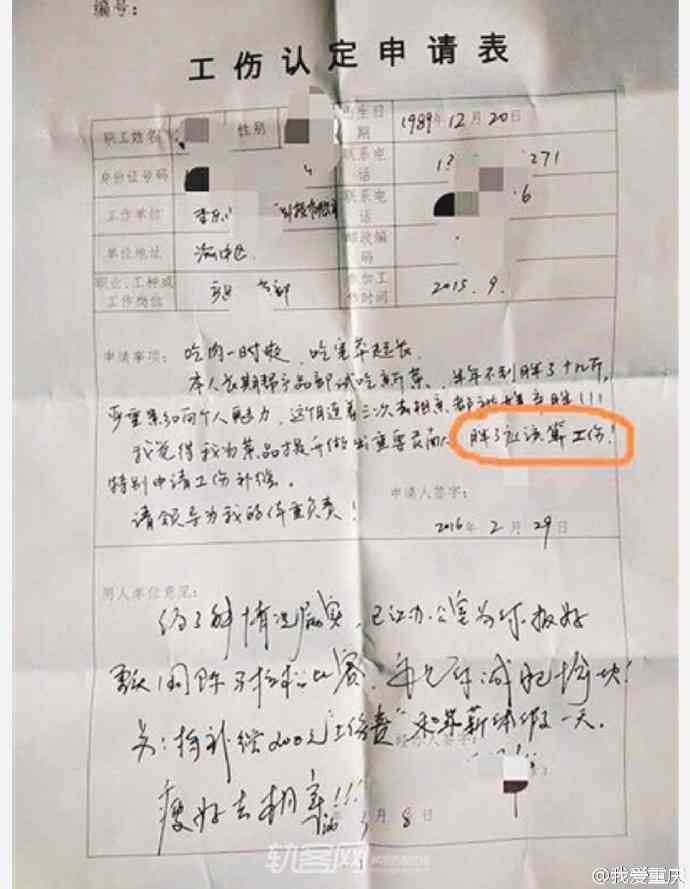 编号：
工伤认定申请表
职工姓名 性别 出生日期 1989年12月20日
身份证号码 联系电话 271
工作单位 联系电话 6
单位地址 渝中区 邮政编码
职业、工种或工作岗位 参加工作时间 2015.9.
申请事项：吃肉一时爽，吃完莽起长。
本人长期帮产品部试吃新菜，半年不到胖了十几斤，
严重影响个人魅力，这个月连着三次去相亲都
我觉得我为菜品提升做出重要贡献，胖了应该算工伤！
特别申请工伤补偿。
请领导为我的体重负责！
申请人签字：
2016年2月29日
用人单位意见：
经了解情况属实，已让办公室为你报好
重庆国际马拉松比赛，
另：将补偿200元"工伤费"和带薪休假一天。
经办人签字：
瘦好去相亲！！！
月8日
轨客网
@我爱重庆